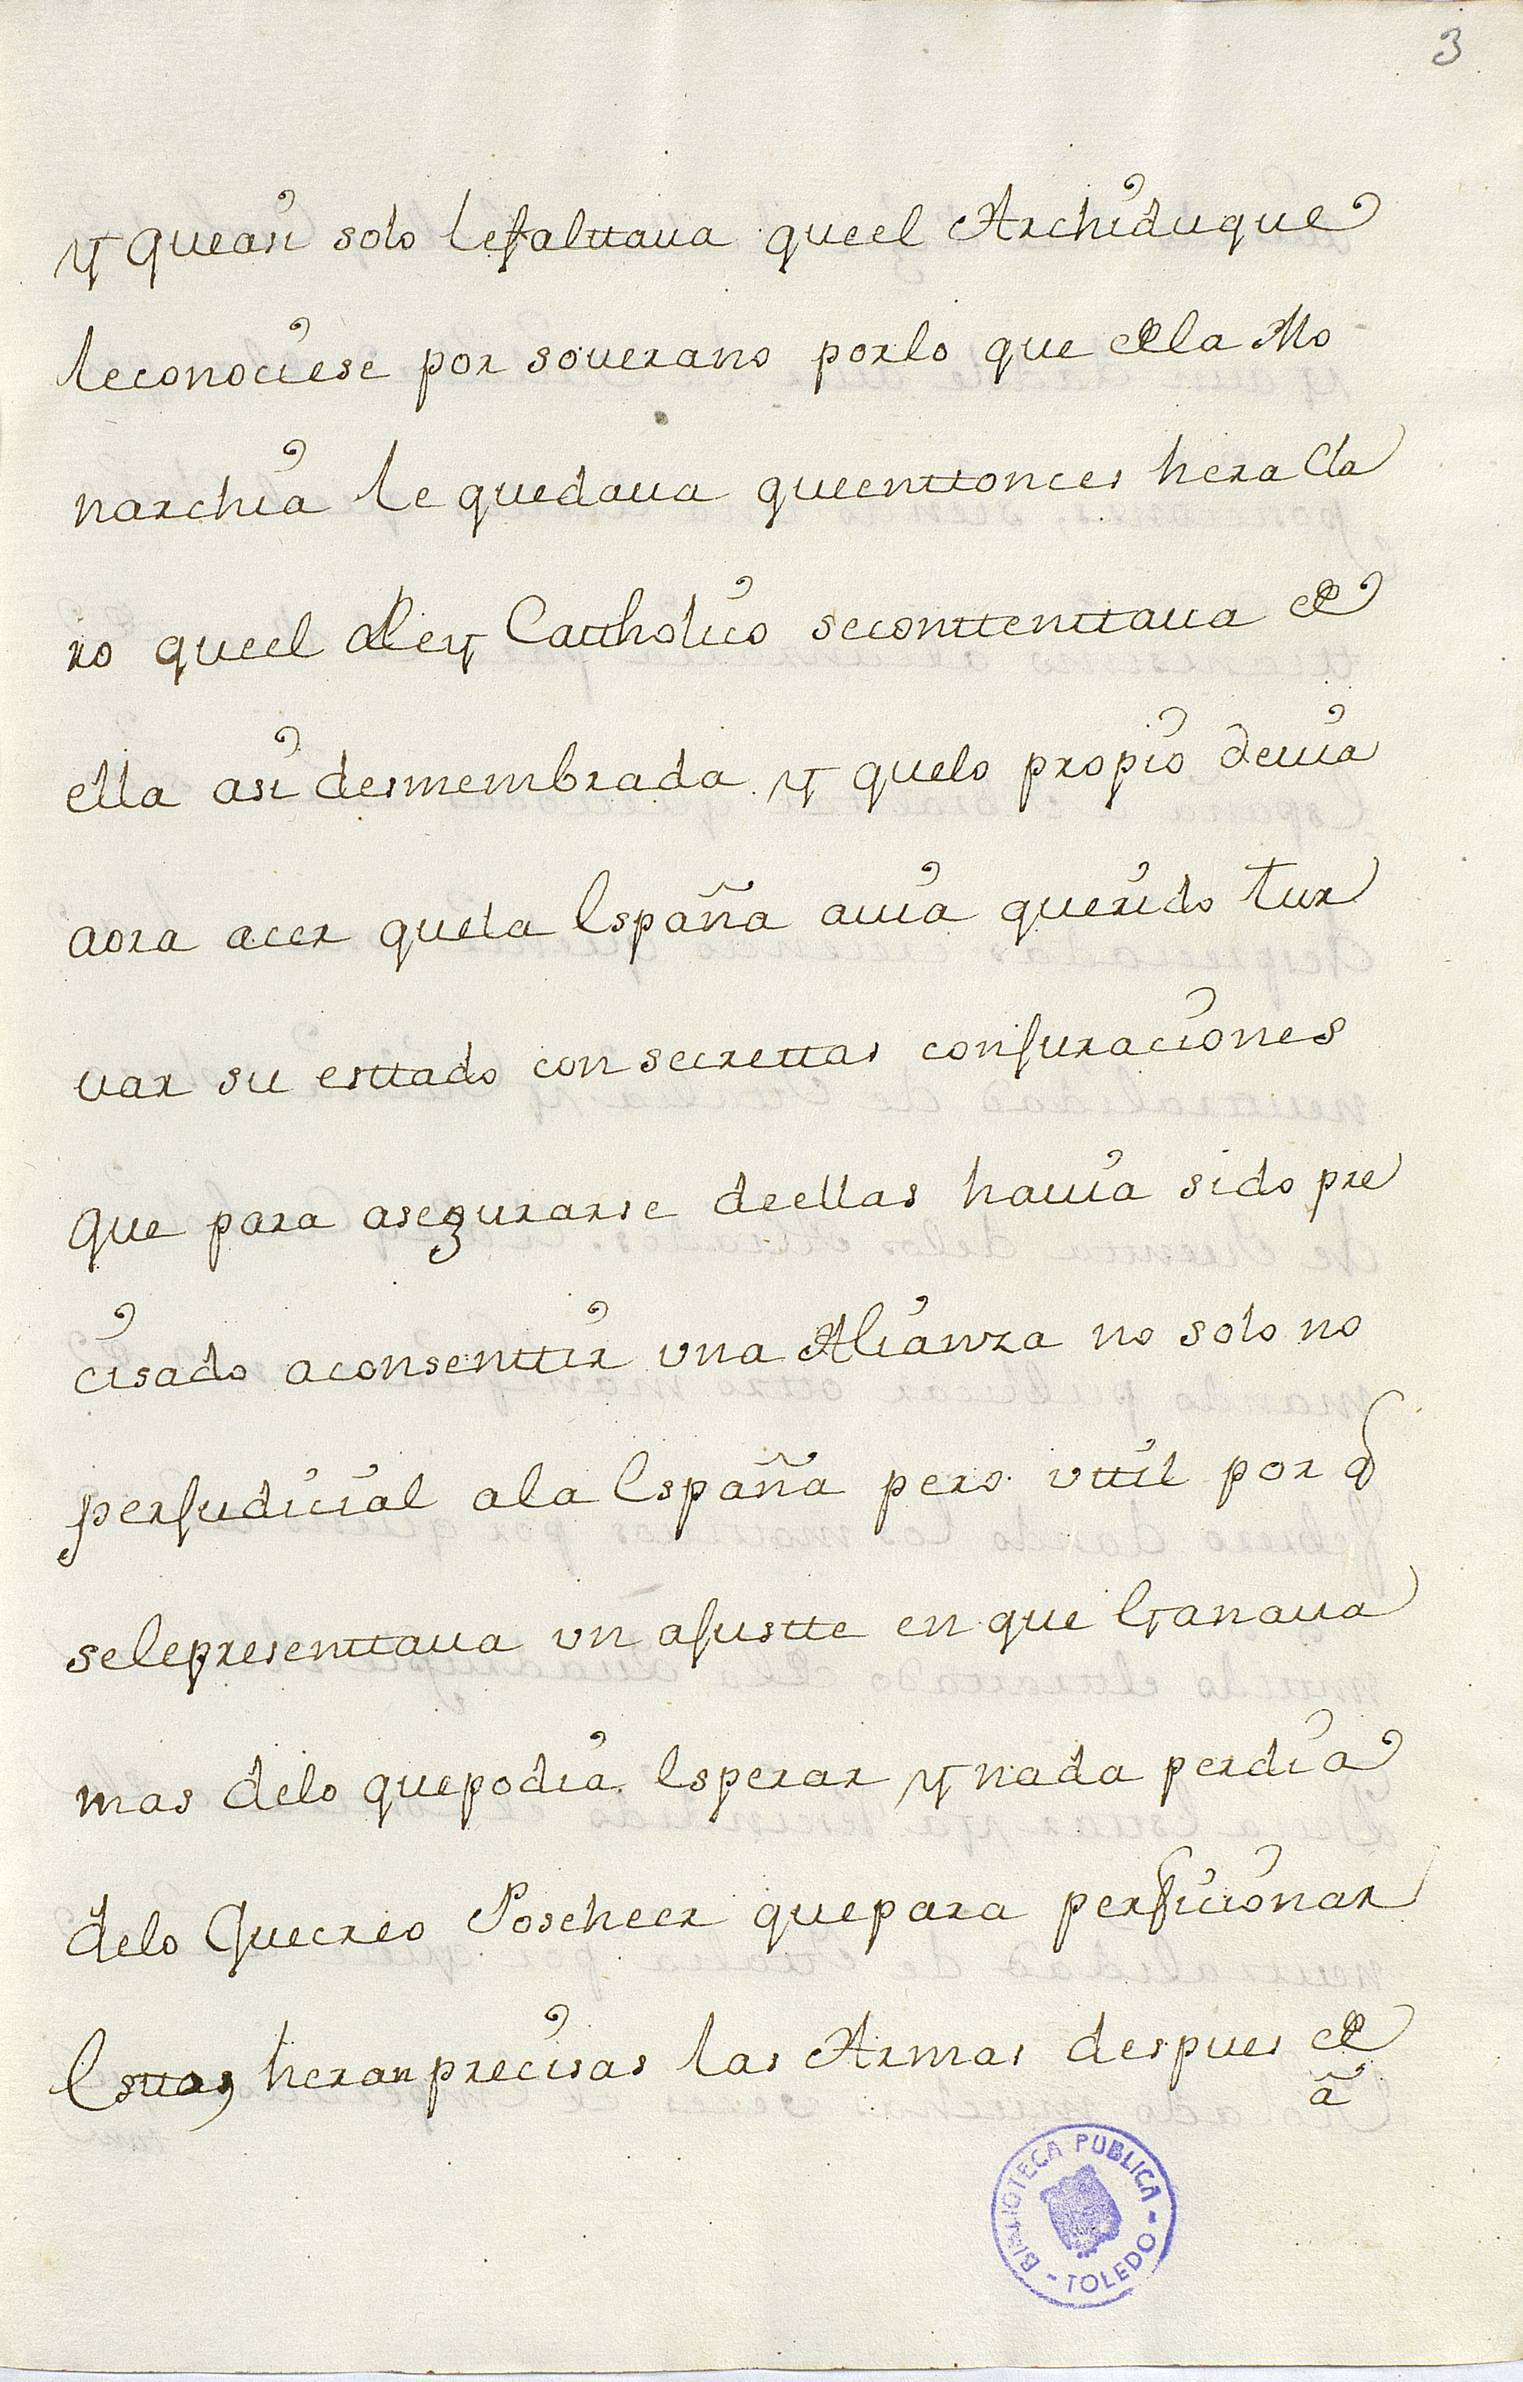 3
y queasi solo lefalttaua queel Archiduque
leconociese por souerano porlo que de la Mo
narchia le quedaua queenttonces hera Cla
ro queel Rey Cattholico seconttenttaua de
ella asi desmembrada y quelo propio deuia
aora acer quela España auia querido tur
uar su esttado con secrettas conjuraciones
que para asegurarse deellas hauia sido pre
cisado aconsenttir vna Alianza no solo no
perjudicial ala España pero vttil por q
selepresenttaua vn ajustte en que Ganaua
mas delo quepodia Esperar y nada perdia
delo Quecreo Poseheer quepara perficionar
Esttas heran precisas las Armas despues de
a
BIBLIOTECA PUBLICA - TOLEDO -